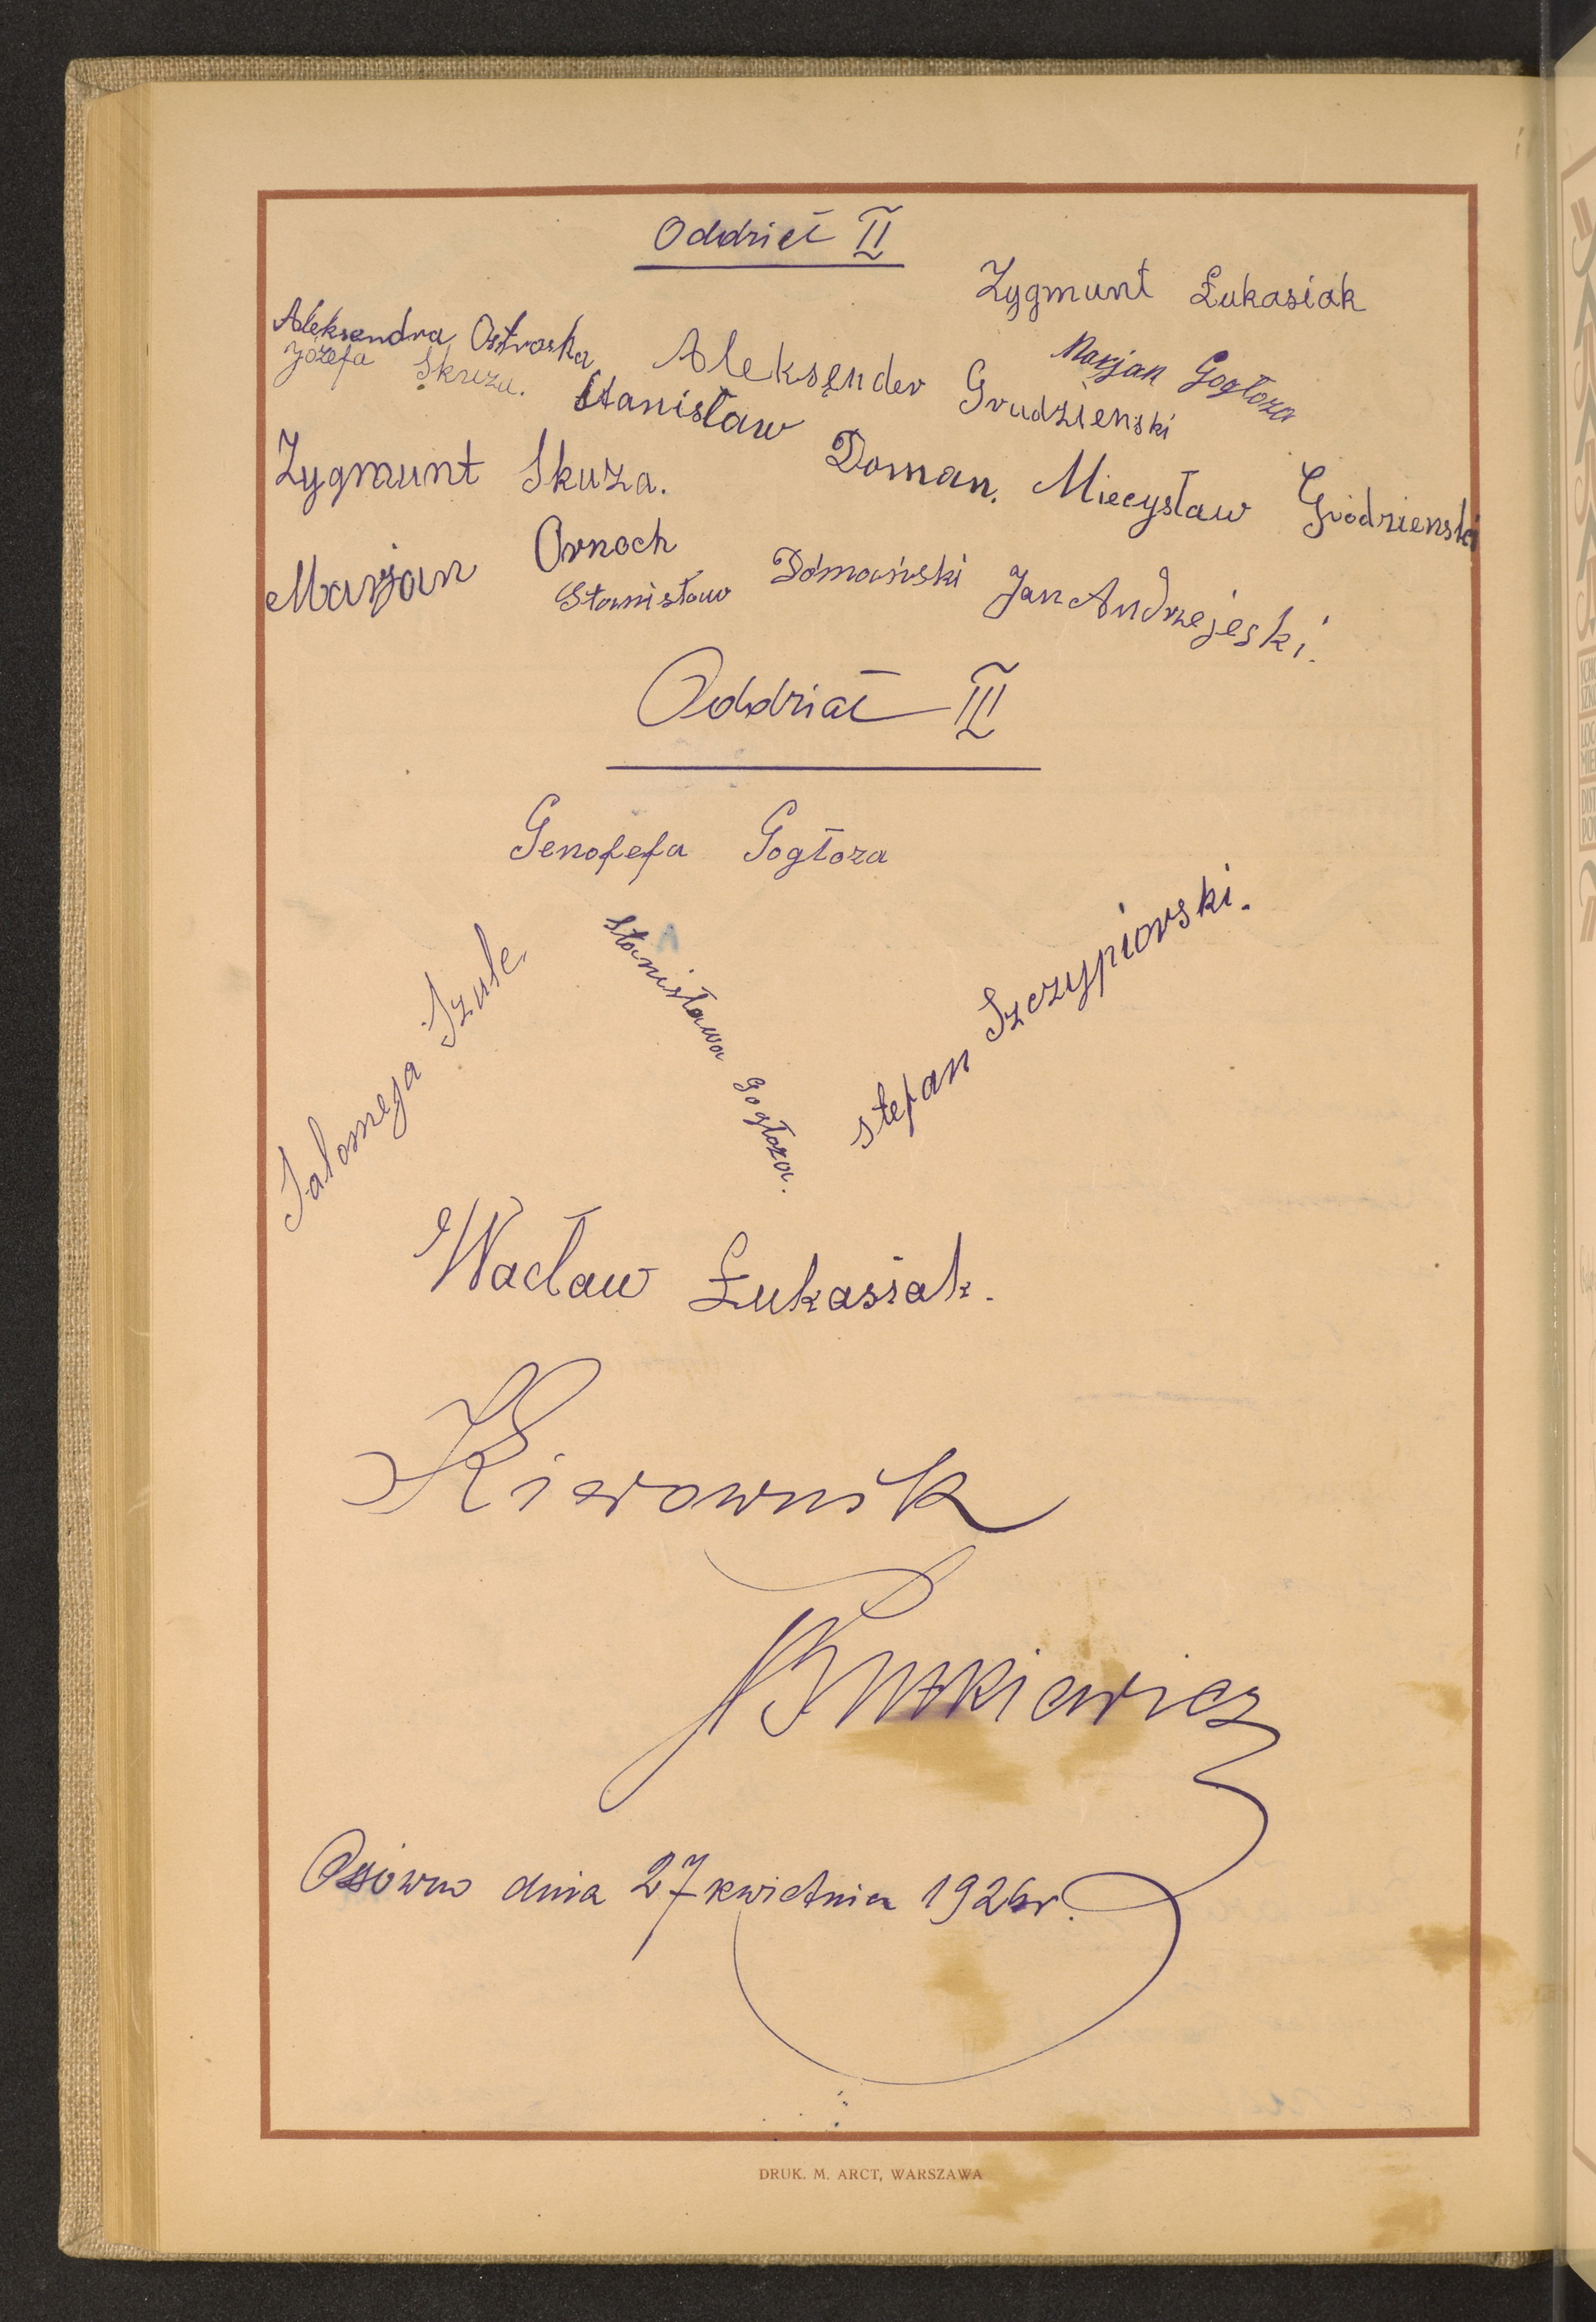 Oddział II
Zygmunt Łukasiak
Aleksendra Ostroska
Józefa Skuza.
Aleksęnder Grudzienski
Marjan Gogłoza
Stanisław Doman.
Zygmunt Skuza.
Miecysław Grudzienski
Marjan Ornoch
Stanisław Domański
Jan Andrzejeski.
Oddział III
Genofefa Gogłoza
Salomeja Szulc
Stanisława Gogłoza.
Stefan Szczypiorski.
Wacław Łukasiak.
Kierownik
Osówno dnia 27 kwietnia 1926r.
DRUK. M. ARCT, WARSZAWA